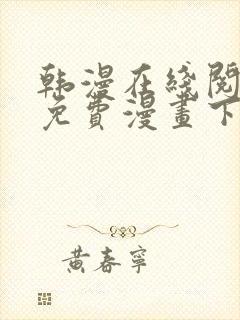 韩漫在綫閱
免費漫畫下
黃春寧